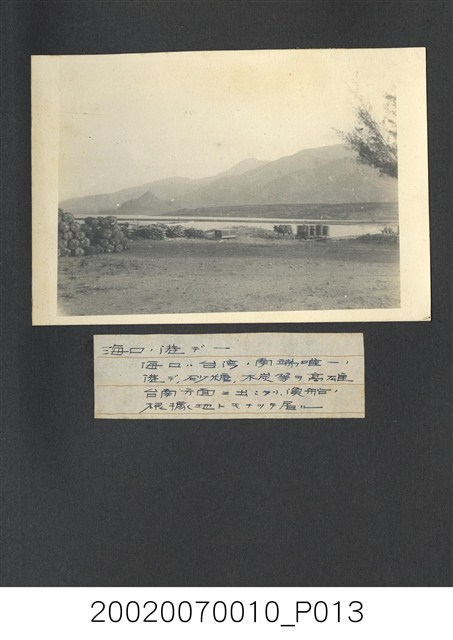 海口ノ港デー
海口ハ台湾ノ南端唯一ノ
港デ、砂糖、木炭等ヲ高雄
台南方面ニ出シタリ、漁船ノ
根拠地トモナッテ居ル
20020070010_P013